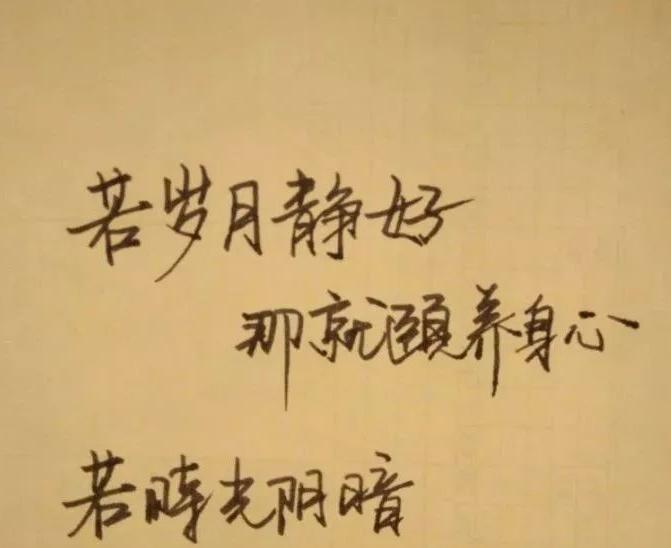 若岁月静好
那就颐养身心
若時光阴暗